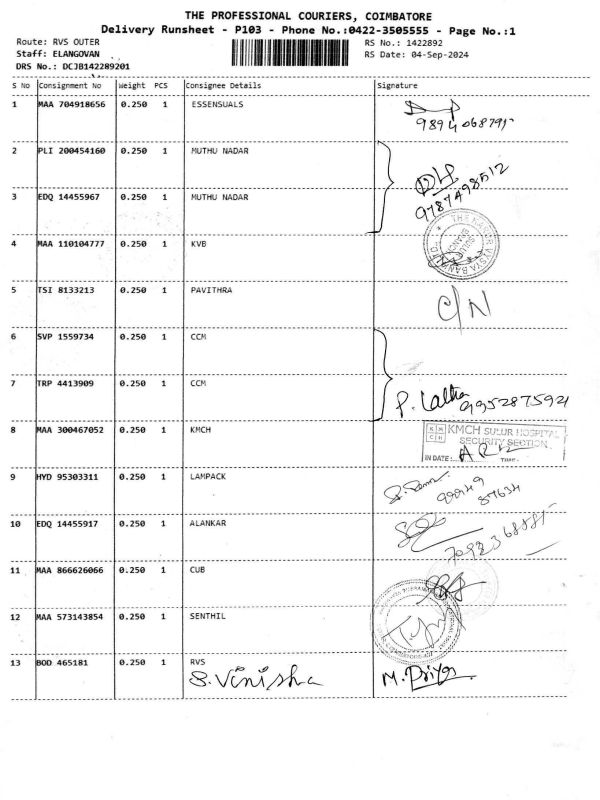 THE PROFESSIONAL COURIERS, COIMBATORE
Delivery Runsheet - P103 - Phone No.:0422-3505555 - Page No.:1
Route: RVS OUTER
RS No.: 1422892
Staff: ELANGOVAN
RS Date: 04-Sep-2024
DRS No.: DCJB142289201
S No Consignment No Weight PCS Consignee Details Signature
1 MAA 704918656 0.250 1 ESSENSUALS
2 PLI 200454160 0.250 1 MUTHU NADAR
9787498512
3 EDQ 14455967 0.250 1 MUTHU NADAR
4 MAA 110104777 0.250 1 KVB
THE KARUR VYSYA BANK
SULUR BRANCH
5 TSI 8133213 0.250 1 PAVITHRA
C/N
6 SVP 1559734 0.250 1 CCM
7 TRP 4413909 0.250 1 CCM
P. Latha 9952875921
8 MAA 300467052 0.250 1 KMCH
KMCH SULUR HOSPITAL
SECURITY SECTION
IN DATE: TIME:
9 HYD 95303311 0.250 1 LAMPACK
10 EDQ 14455917 0.250 1 ALANKAR
11 MAA 866626066 0.250 1 CUB
12 MAA 573143854 0.250 1 SENTHIL
13 BOD 465181 0.250 1 RVS
S. Vinisha M. Priya